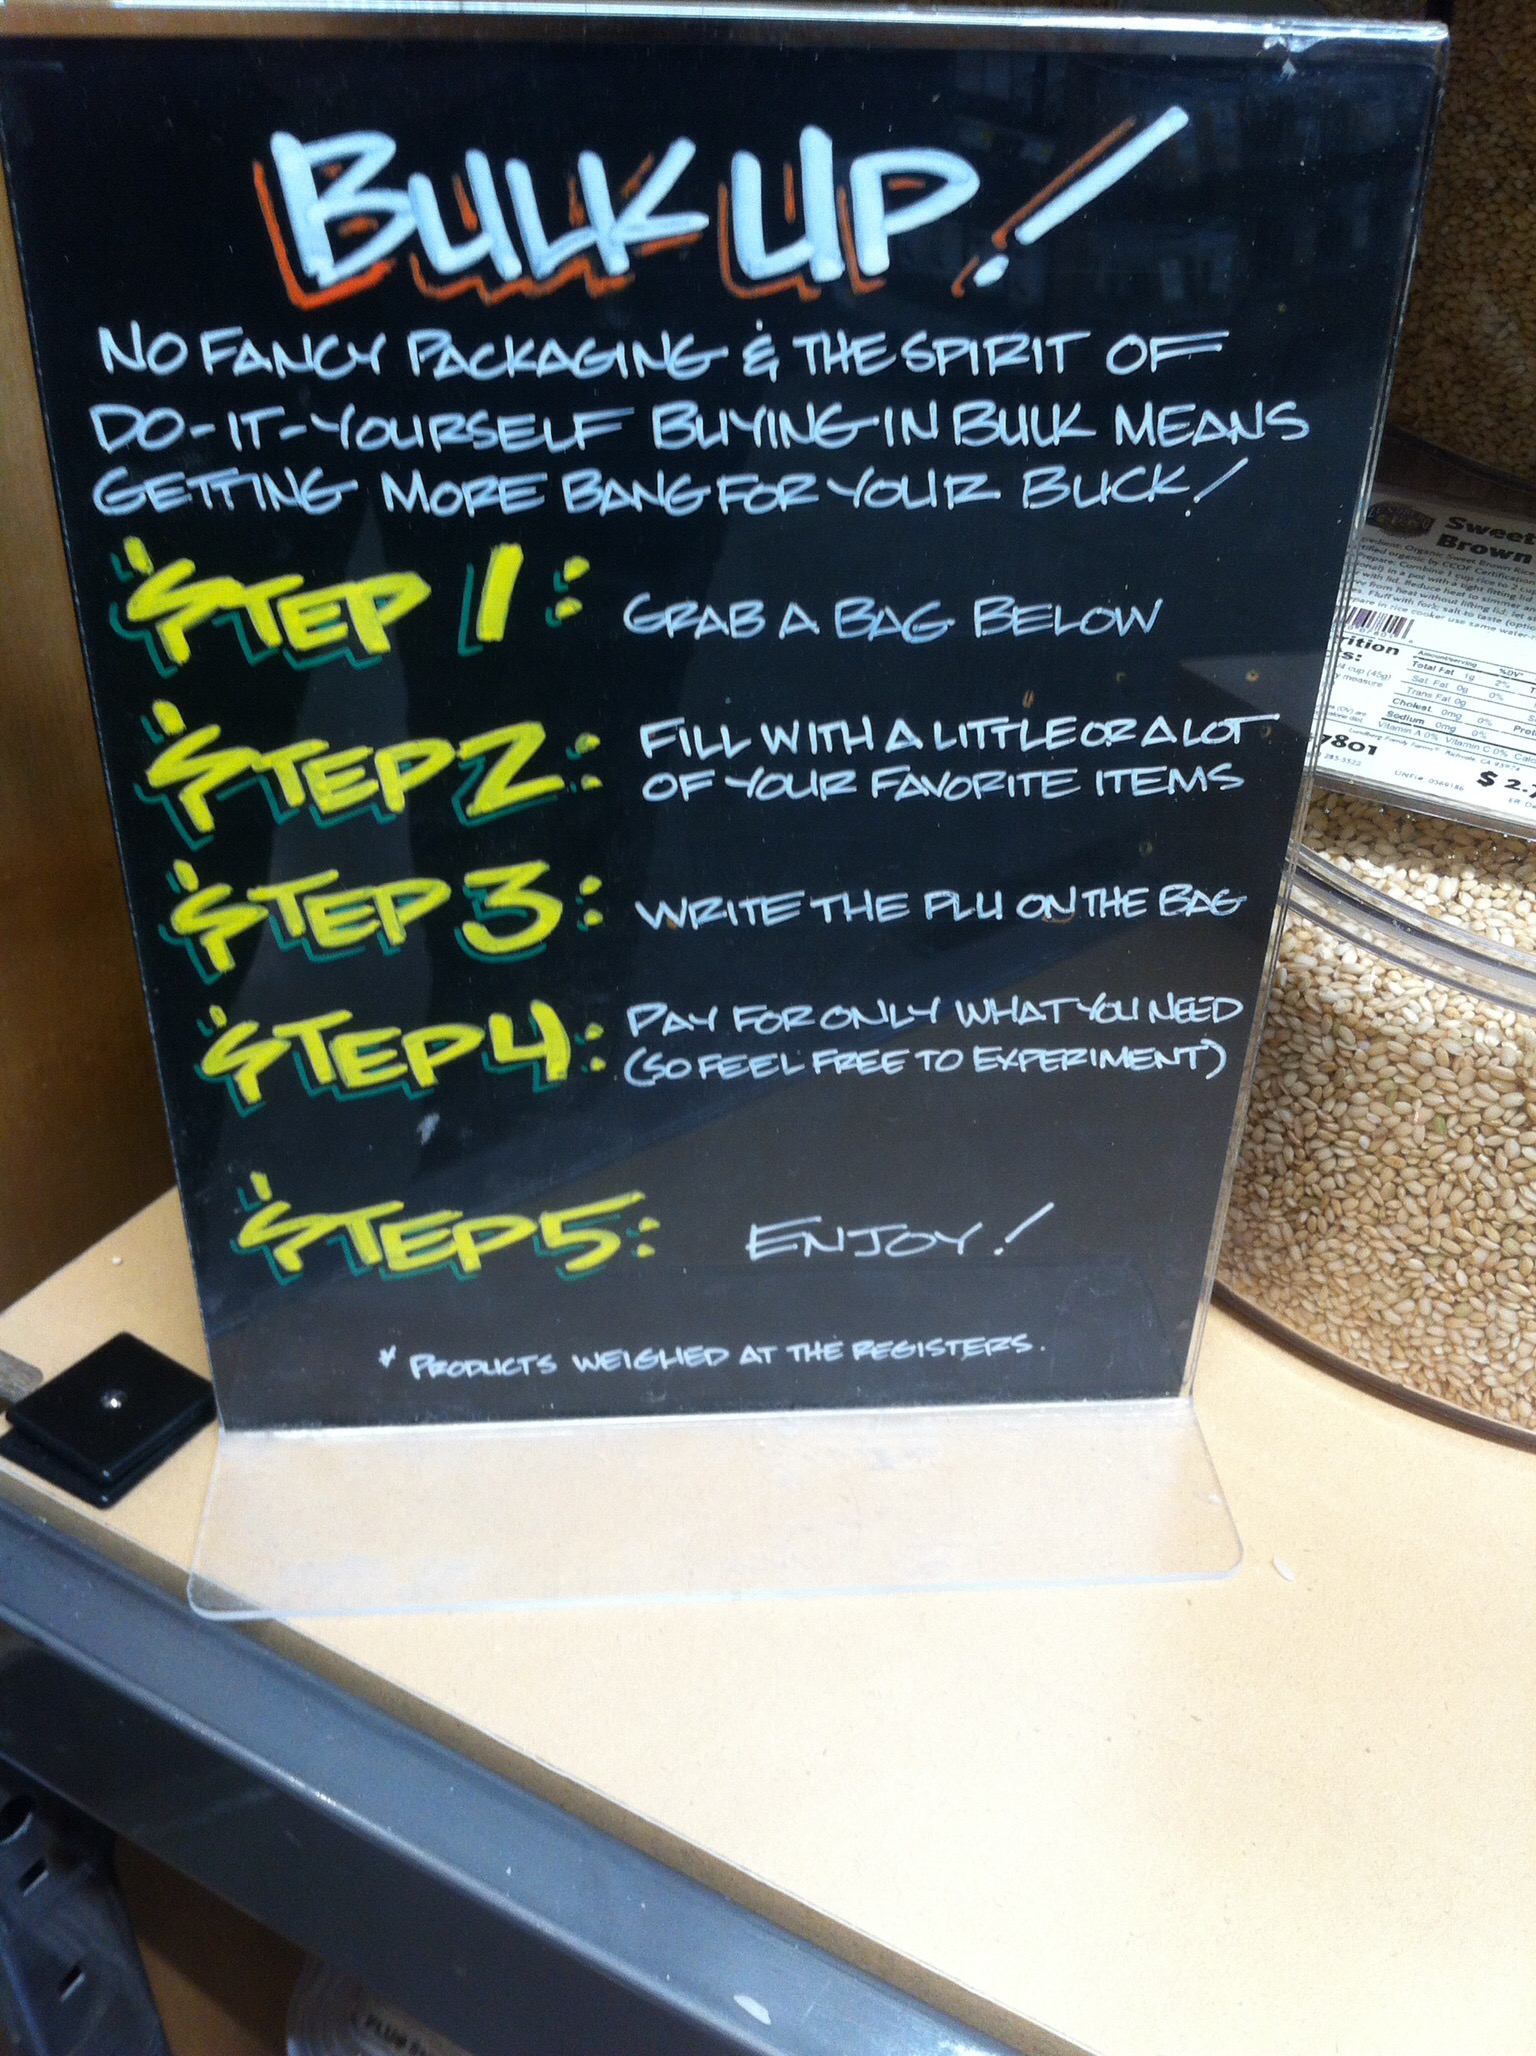 BULK UP!
NO FANCY PACKAGING & THE SPIRIT OF
DO-IT-YOURSELF BUYING IN BULK MEANS
GETTING MORE BANG FOR YOUR BUCK!
STEP 1: GRAB A BAG BELOW
STEP 2: FILL WITH A LITTLE OR A LOT
OF YOUR FAVORITE ITEMS
STEP 3: WRITE THE PLU ON THE BAG
STEP 4: PAY FOR ONLY WHAT YOU NEED
(SO FEEL FREE TO EXPERIMENT)
STEP 5: ENJOY!
* PRODUCTS WEIGHED AT THE REGISTERS.
Sweet
Brown
Amount/serving %DV*
Total Fat 1g 2%
Sat. Fat 0g 0%
Trans Fat 0g
Cholest. 0mg 0%
Sodium 0mg 0%
Vitamin A 0% Vitamin C 0%
7801
$2.7